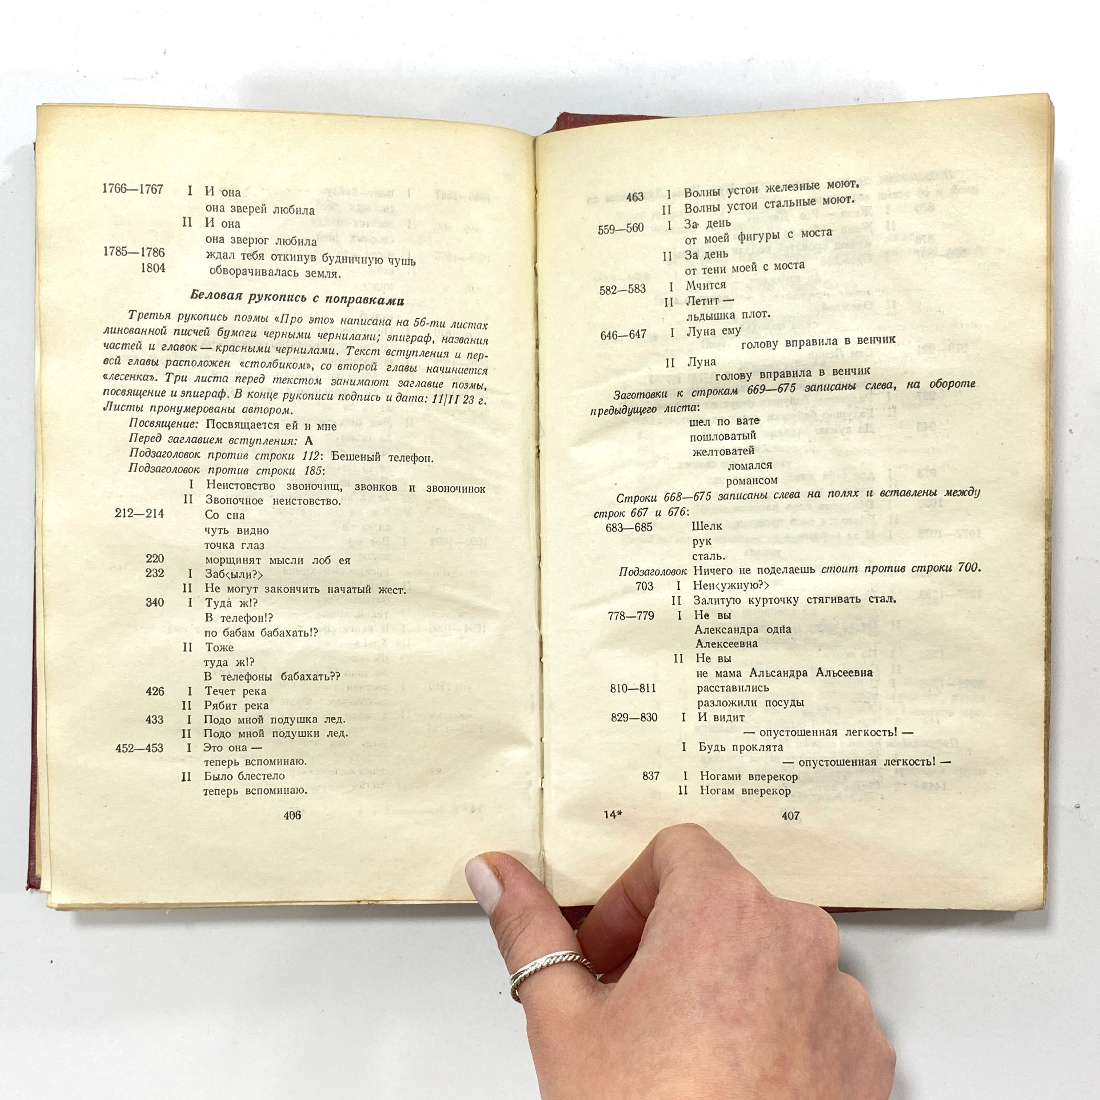 1766—1767 I И она
она зверей любила
II И она
она зверюг любила
1785—1786 ждал тебя откинув будничную чушь
1804 обворачивалась земля.
Беловая рукопись с поправками
Третья рукопись поэмы «Про это» написана на 56-ти листах
линованной писчей бумаги черными чернилами; эпиграф, названия
частей и главок — красными чернилами. Текст вступления и пер-
вой главы расположен «столбиком», со второй главы начинается
«лесенка». Три листа перед текстом занимают заглавие поэмы,
посвящение и эпиграф. В конце рукописи подпись и дата: 11/II 23 г.
Листы пронумерованы автором.
Посвящение: Посвящается ей и мне
Перед заглавием вступления: А
Подзаголовок против строки 112: Бешеный телефон.
Подзаголовок против строки 185:
I Неистовство звоночищ, звонков и звоночинок
II Звоночное неистовство.
212—214 Со сна
чуть видно
точка глаз
220 морщинят мысли лоб ея
232 I Заб<ыли?>
II Не могут закончить начатый жест.
340 I Туда ж!?
В телефон!?
по бабам бабахать!?
II Тоже
туда ж!?
В телефоны бабахать??
426 I Течет река
II Рябит река
433 I Подо мной подушка лед.
II Подо мной подушки лед.
452—453 I Это она —
теперь вспоминаю.
II Было блестело
теперь вспоминаю.
406
463 I Волны устои железные моют.
II Волны устои стальные моют.
559—560 I За день
от моей фигуры с моста
II За день
от тени моей с моста
582—583 I Мчится
II Летит —
льдышка плот.
646—647 I Луна ему
голову вправила в венчик
II Луна
голову вправила в венчик
Заготовки к строкам 669—675 записаны слева, на обороте
предыдущего листа:
шел по вате
пошловатый
желтоватей
ломался
романсом
Строки 668—675 записаны слева на полях и вставлены между
строк 667 и 676:
683—685 Шелк
рук
сталь.
Подзаголовок Ничего не поделаешь стоит против строки 700.
703 I Нен<ужную?>
II Залитую курточку стягивать стал.
778—779 I Не вы
Александра одна
Алексеевна
II Не вы
не мама Альсандра Альсеевна
810—811 расставились
разложили посуды
829—830 I И видит
— опустошенная легкость! —
I Будь проклята
— опустошенная легкость! —
837 I Ногами вперекор
II Ногам вперекор
14* 407